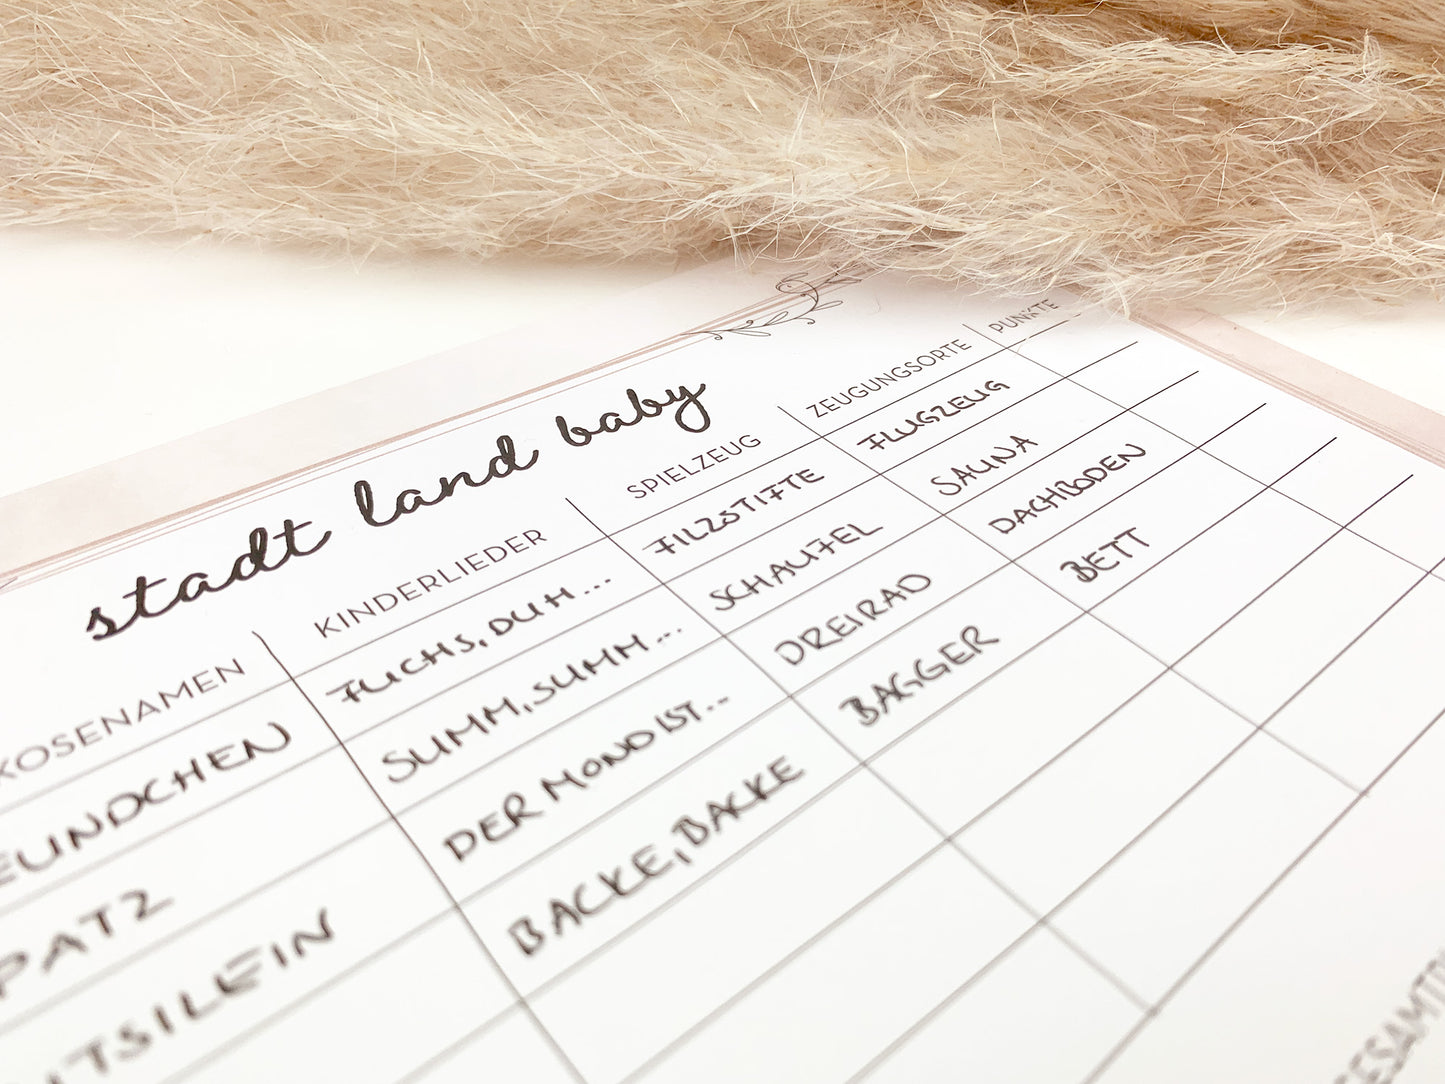 stadt land baby
KOSENAMEN KINDERLIEDER SPIELZEUG ZEUGUNGSORTE PUNKTE
FUCHS, DU H... FILZSTIFTE FLUGZEUG
SUMM, SUMM... SCHAUFEL SAUNA
PATZ DER MOND IST... DREIRAD DACHBODEN
BACKE, BACKE BAGGER BETT